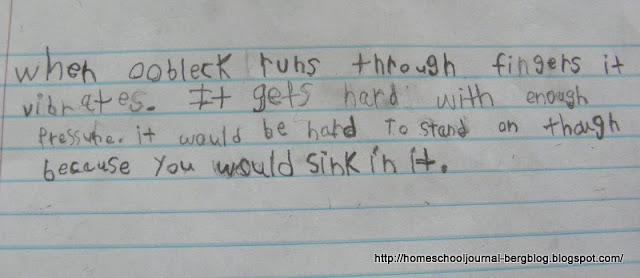 when oobleck runs through fingers it
vibrates. It gets hard with enough
pressure. it would be hard To stand on though
because you would sink in it.
http://homeschooljournal-bergblog.blogspot.com/